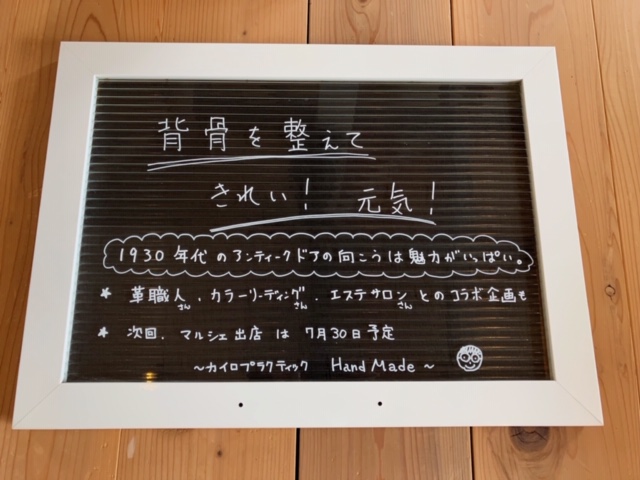 背骨を整えて
きれい！ 元気！
1930年代のアンティークドアの向こうは魅力がいっぱい。
* 革職人さん、カラーリーディングさん、エステサロンさんとのコラボ企画も
* 次回、マルシェ出店は7月30日予定
～カイロプラクティック Hand Made～